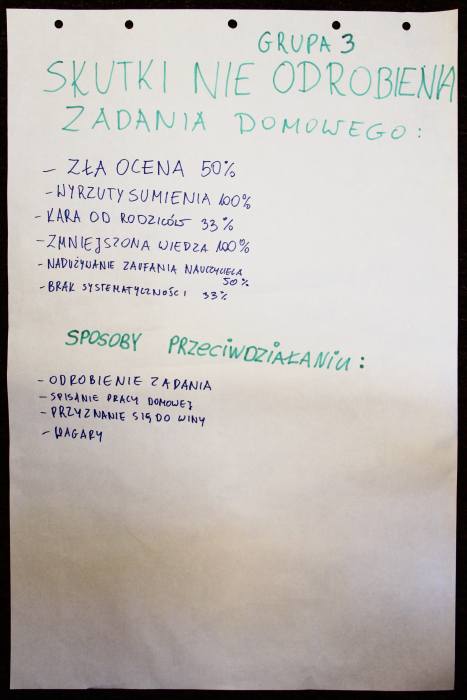 GRUPA 3
SKUTKI NIE ODROBIENIA
ZADANIA DOMOWEGO:
- ZŁA OCENA 50%
- WYRZUTY SUMIENIA 100%
- KARA OD RODZICÓW 33%
- ZMNIEJSZONA WIEDZA 100%
- NADUŻYWANIE ZAUFANIA NAUCZYCIELA
50%
- BRAK SYSTEMATYCZNOŚCI 33%
SPOSOBY PRZECIWDZIAŁANIU:
- ODROBIENIE ZADANIA
- SPISANIE PRACY DOMOWEJ
- PRZYZNANIE SIĘ DO WINY
- WAGARY